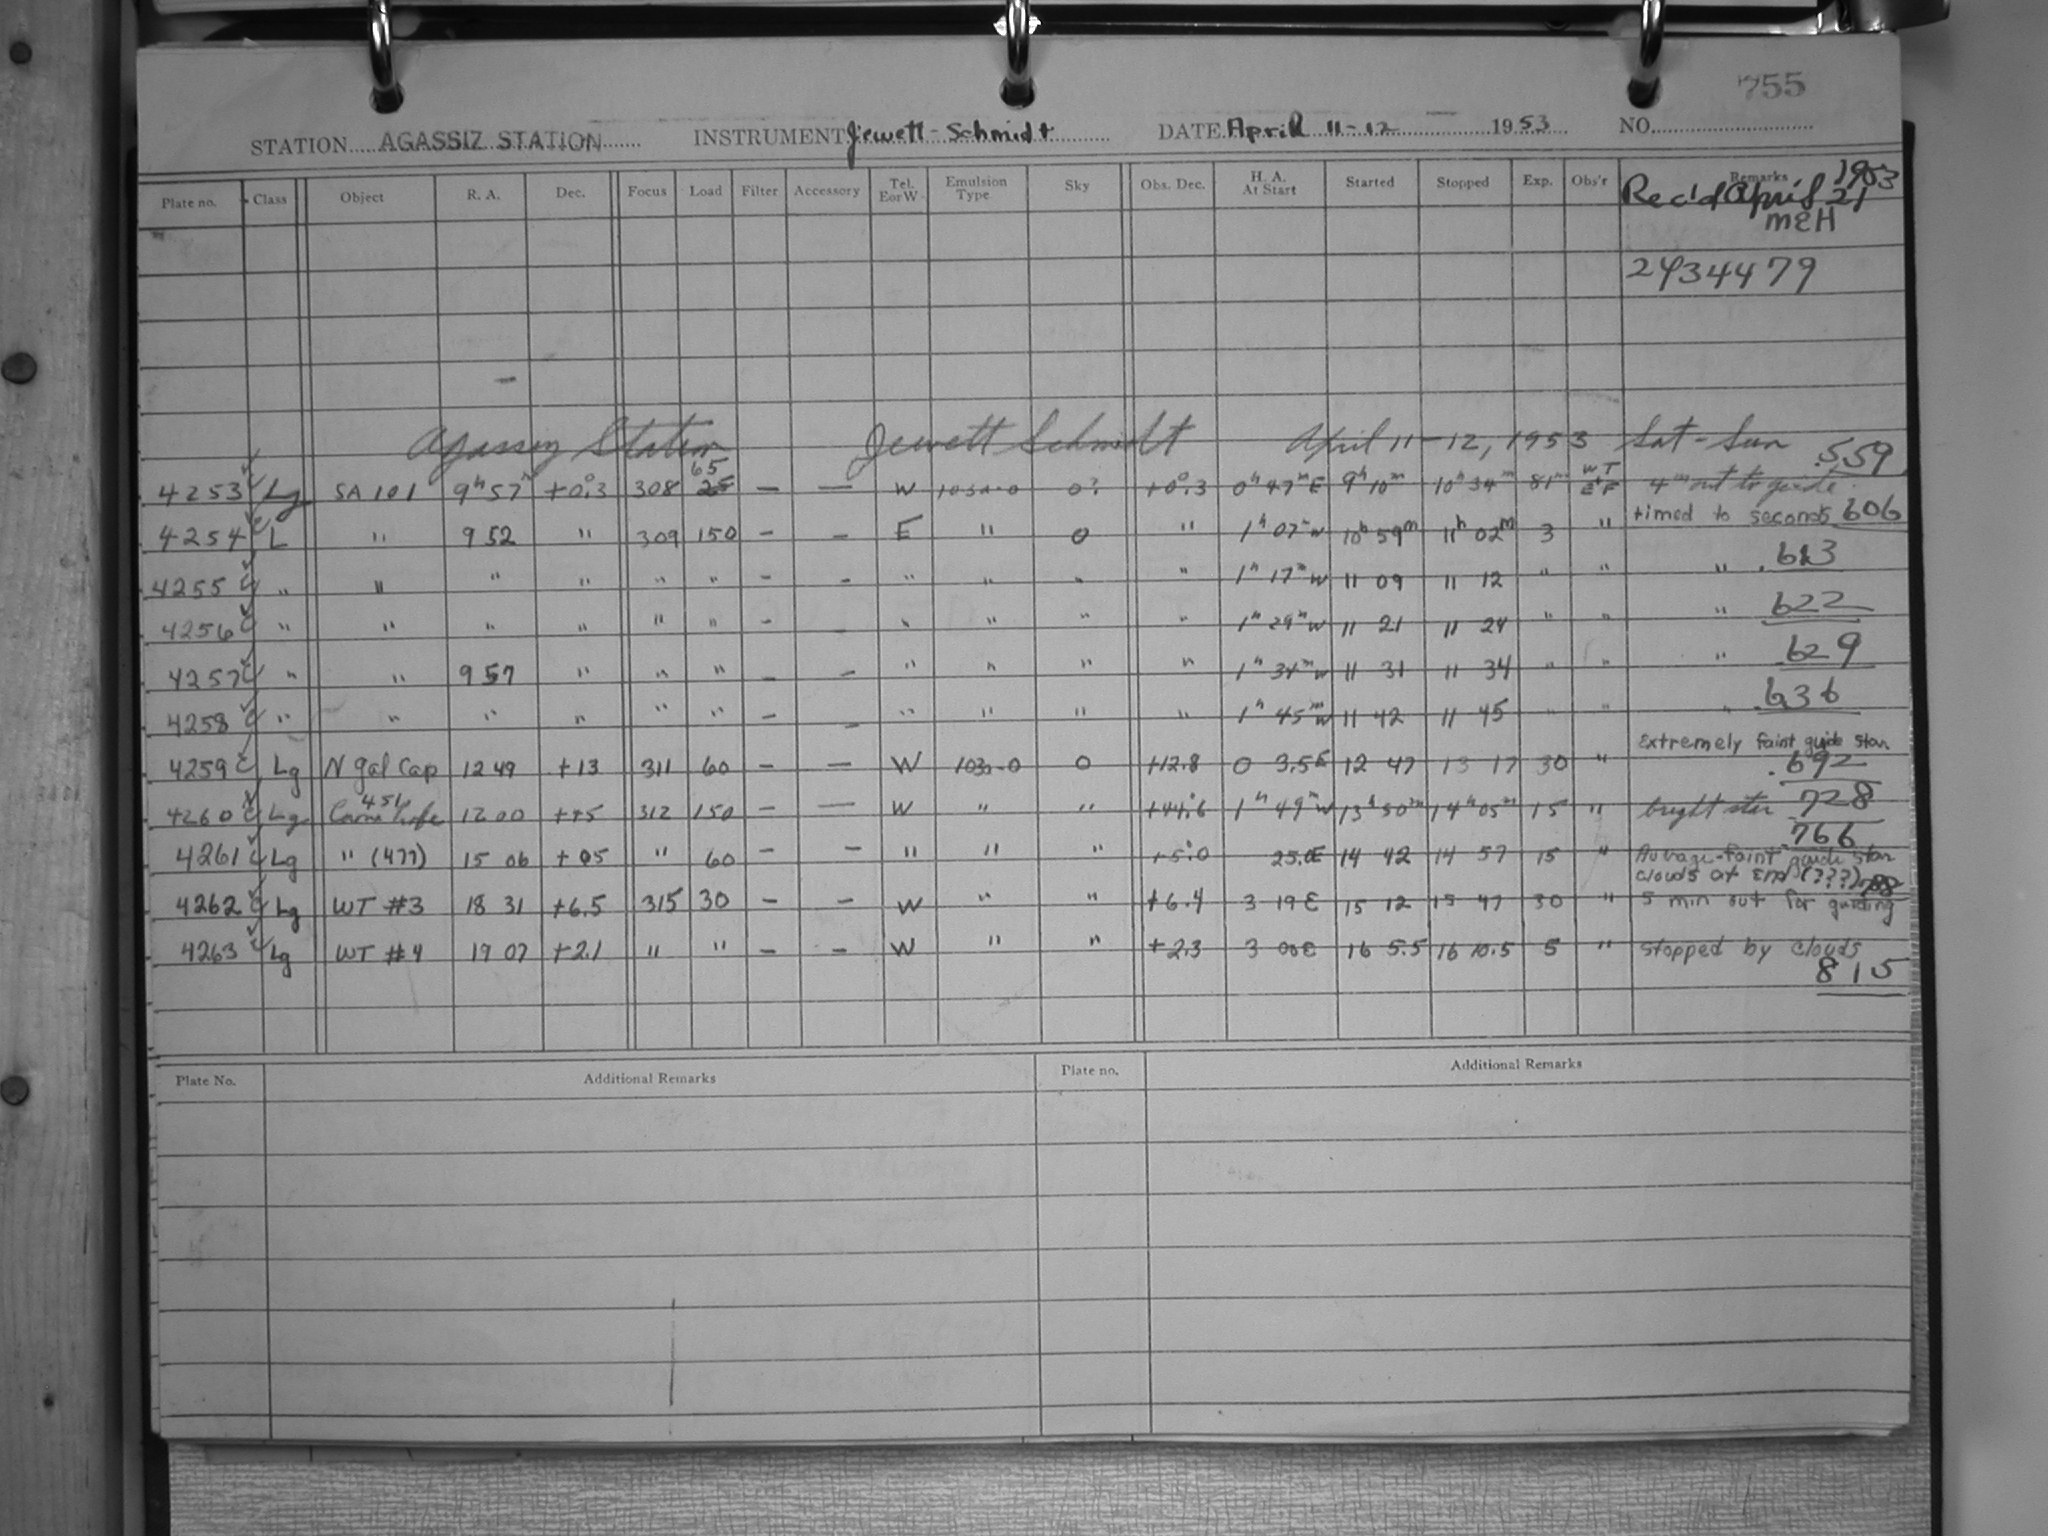 755
STATION AGASSIZ STATION INSTRUMENT Jewett-Schmidt DATE April 11-12 1953 NO.
Plate no. Class Object R. A. Dec. Focus Load Filter Accessory Tel. E or W Emulsion Type Sky Obs. Dec. H. A. At Start Started Stopped Exp. Obs'r Remarks
Rec'd April 21 1953
MEH
2434479
Agassiz Station Jewett Schmidt April 11-12, 1953 Sat-Sun .559
4253 Lg SA 101 9h 57m +0°.3 308 65 25 - - W 103a-0 0? +0°.3 0h 47m E 9h 10m 10h 34m 81m WT EF 4m out to guide
4254 L " 9 52 " 309 150 - - E " 0 " 1h 07m W 10h 59m 11h 02m 3 " timed to seconds 606
4255 " " " " " " - - " " " " 1h 17m W 11 09 11 12 " " " .613
4256 " " " " " " - - " " " " 1h 29m W 11 21 11 24 " " " 622
4257 " " 9 57 " " " - - " " " " 1h 34m W 11 31 11 34 " " " .629
4258 " " " " " " - - " " " " 1h 45m W 11 42 11 45 " " " .636
Extremely faint guide star
4259 Lg N gal Cap 12 49 +13 311 60 - - W 103a-0 0 +12.8 0 3.5E 12 47 13 17 30 " .692
4260 Lg 451 12 00 +45 312 150 - - W " " +44°.6 1h 49m W 13h 50m 14h 05m 15 " bright star 728
.766
4261 Lg " (477) 15 06 +05 " 60 - - " " " +5°.0 25.0E 14 42 14 57 15 " Average-faint guide star
clouds at end (???) 788
4262 Lg WT #3 18 31 +6.5 315 30 - - W " " +6.4 3 19E 15 12 15 47 30 " 5 min out for guiding
4263 Lg WT #4 19 07 +2.1 " " - - W " " +2.3 3 00E 16 5.5 16 10.5 5 " stopped by clouds
815
Plate No. Additional Remarks Plate no. Additional Remarks